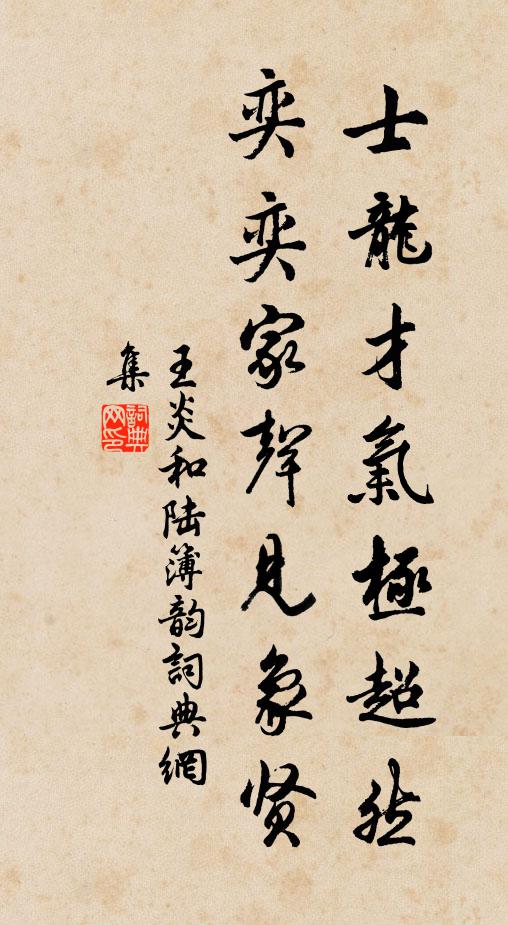 士龍才氣極超然
奕奕家聲見象贤
王炎和陆簿韵詞典網
集
詞典网印